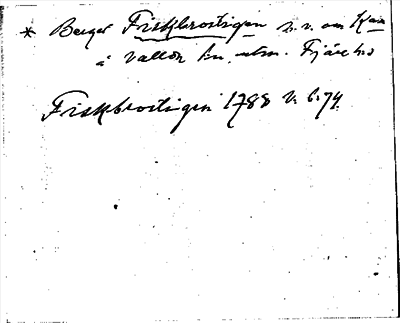 * Berget Fiskbrostigen n.v. om Kåa
å Vallda hn, utm. Fjäre hd
Fiskbrostigen 1788 v. 6:74.